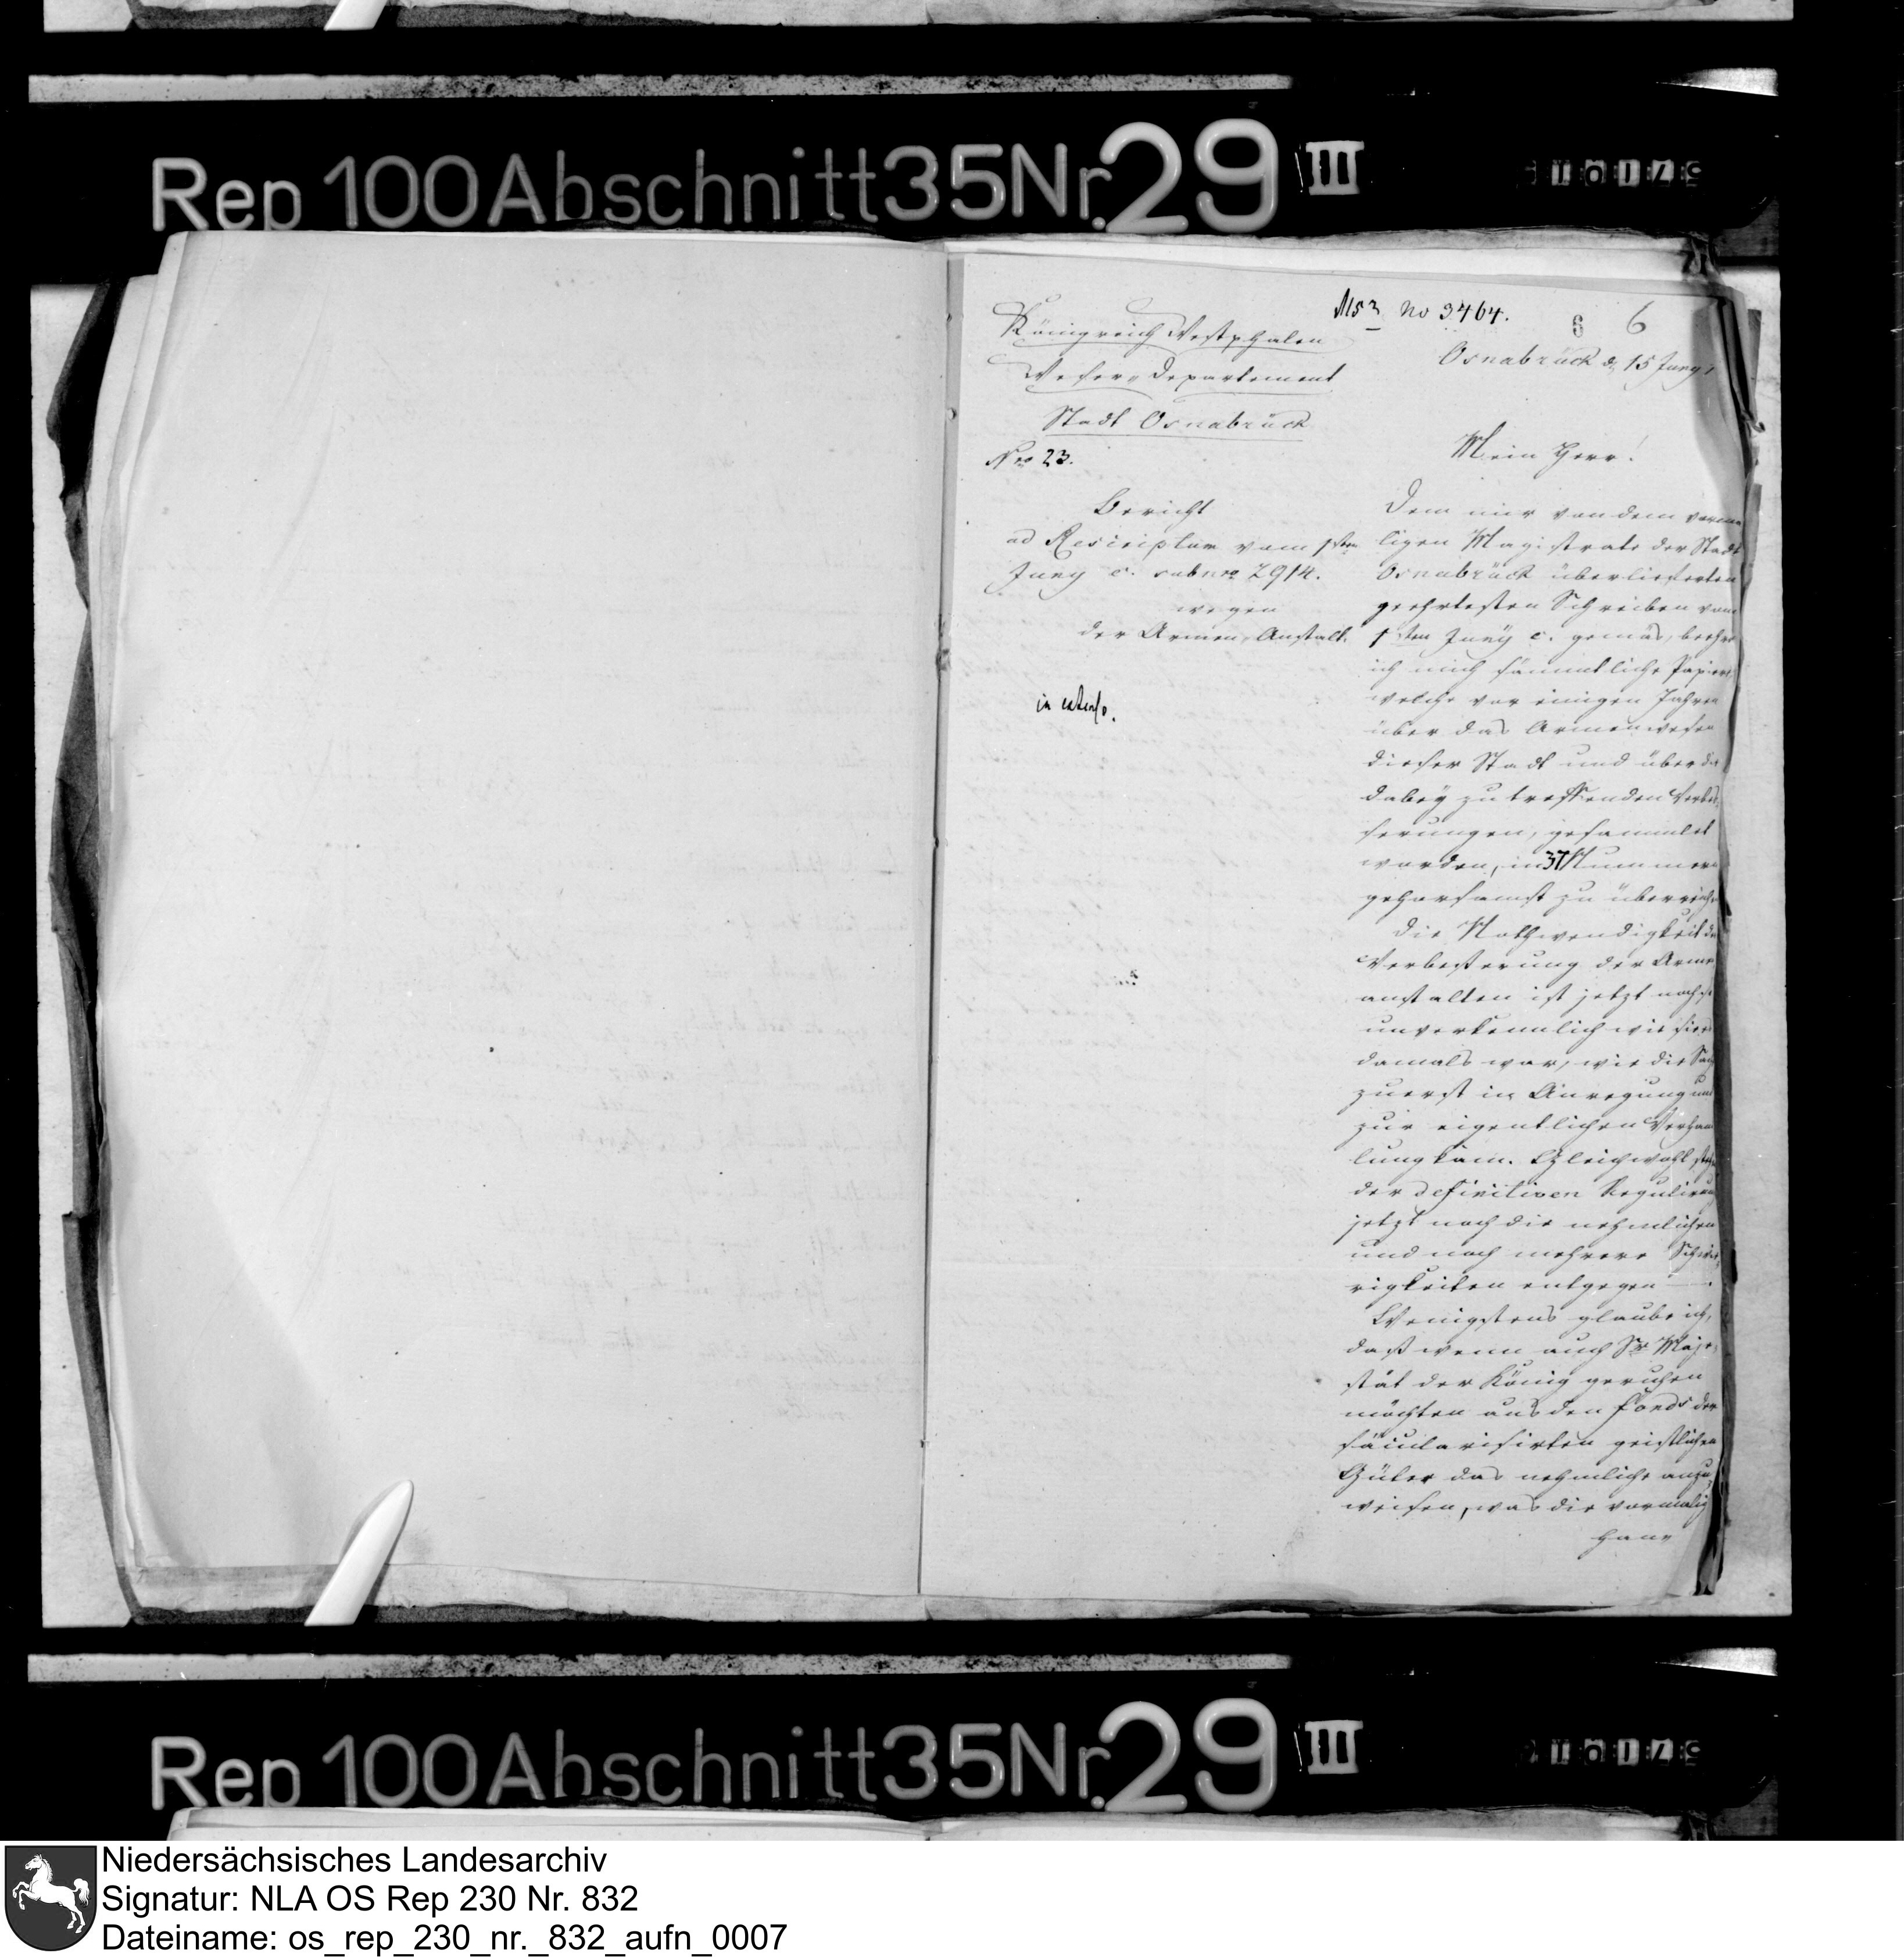 Rep 100 Abschnitt 35 Nr. 29 III
No 3464.
6 6
Königreich Westphalen
Weser-Departement
Stadt Osnabrück
Nro 23.
Osnabrück d. 15 Juny
Mein Herr!
Bericht
ad Rescriptum vom 1sten
Juny c. sub nro 2914.
wegen
der Armen-Anstalt.
in extenso.
Dem mir von dem vorma
ligen Magistrate der Stadt
Osnabrück überlieferten
geehrtesten Schreiben vom
1sten Juny c. gemäs, beehre
ich mich sämmtliche Papiere,
welche vor einigen Jahren
über das Armenwesen
dieser Stadt und über die
dabey zu treffenden Verbes
serungen, gesammelt
worden, in 37 Nummern
gehorsamst zu überreichen
Die Nothwendigkeit der
Verbesserung der Armen
anstalten ist jetzt noch so
unverkennlich wie sie es
damals war, wie die Sache
zuerst in Anregung und
zur eigentlichen Verhand
lung kam. Gleichwohl stehen
der definitiven Regulirung
jetzt noch die nehmlichen
und noch mehrere Schwie
rigkeiten entgegen.
Wenigstens glaube ich,
daß wenn auch Sr Maje
stät der König geruhen
möchten aus den Fonds der
säcularisirten geistlichen
Güter das nehmliche anzu
weisen, was die vormalige
Han-
Rep 100 Abschnitt 35 Nr. 29 III
Niedersächsisches Landesarchiv
Signatur: NLA OS Rep 230 Nr. 832
Dateiname: os_rep_230_nr._832_aufn_0007